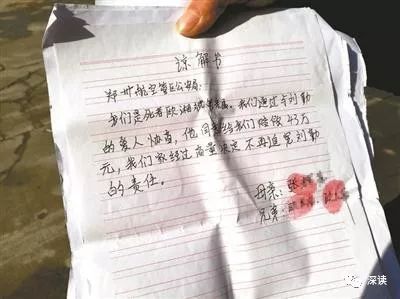 谅解书
郑州航空管区公安局:
我们是死者欧湘斌的亲属。我们通过与刘勤
的家人协商,他同意给我们赔偿43万
元,我们家经过商量决定不再追究刘勤
的责任。
母亲:张
兄弟:
深读